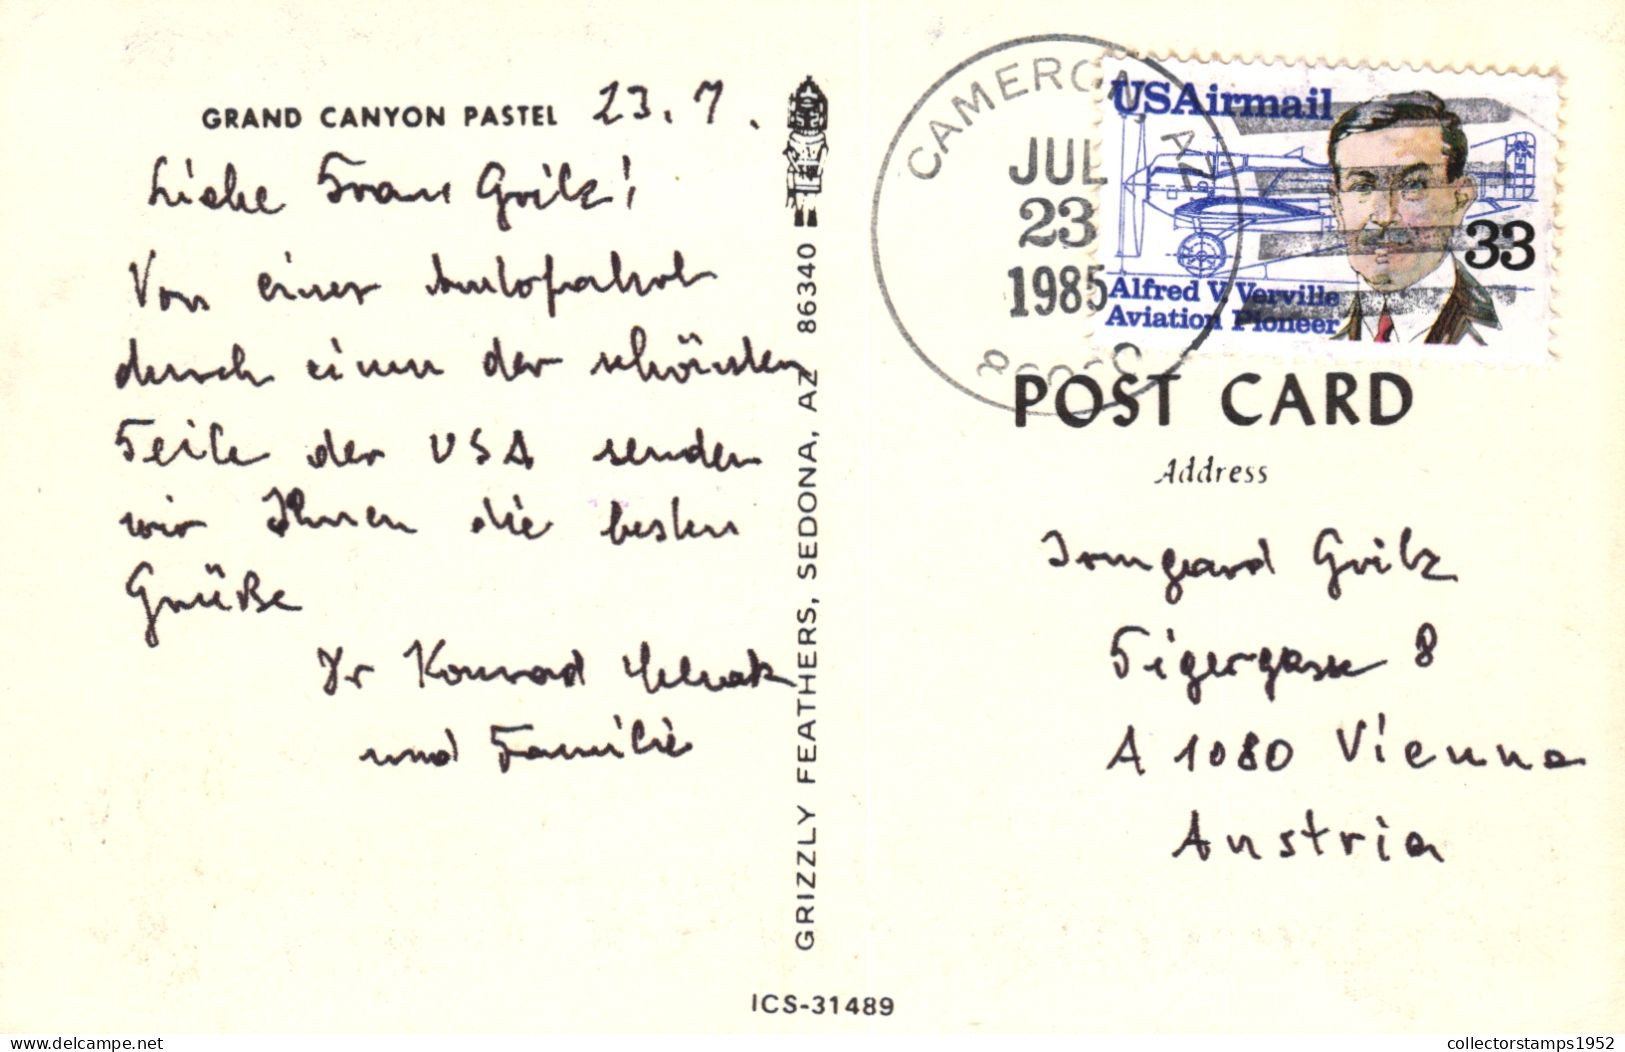 GRAND CANYON PASTEL 23. 7.
Liebe Frau Grilz!
Von einer Autofahrt
durch einen der schönsten
Teile der USA senden
wir Ihnen die besten
Grüße
Ihr Konrad
und Familie
GRIZZLY FEATHERS, SEDONA, AZ 86340
ICS-31489
CAMERON, AZ
JUL
23
1985
USAirmail
33
Alfred V. Verville
Aviation Pioneer
POST CARD
Address
Irmgard Grilz
Tigergasse 8
A 1080 Vienna
Austria
Mit freundlicher Genehmigung von: https://www.delcampe.net
collectorstamps1952